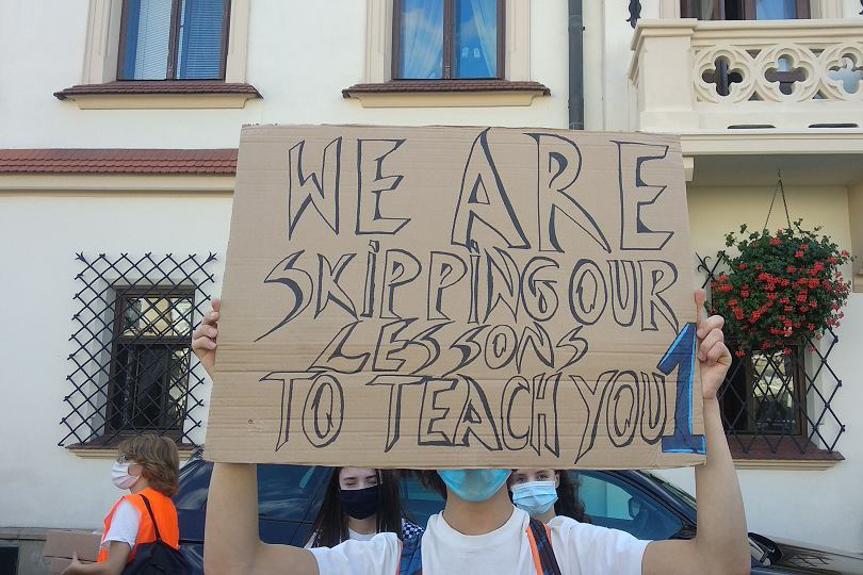 WE ARE
SKiPPiNG OUR
LESSONS
TO TEACH YOU 1